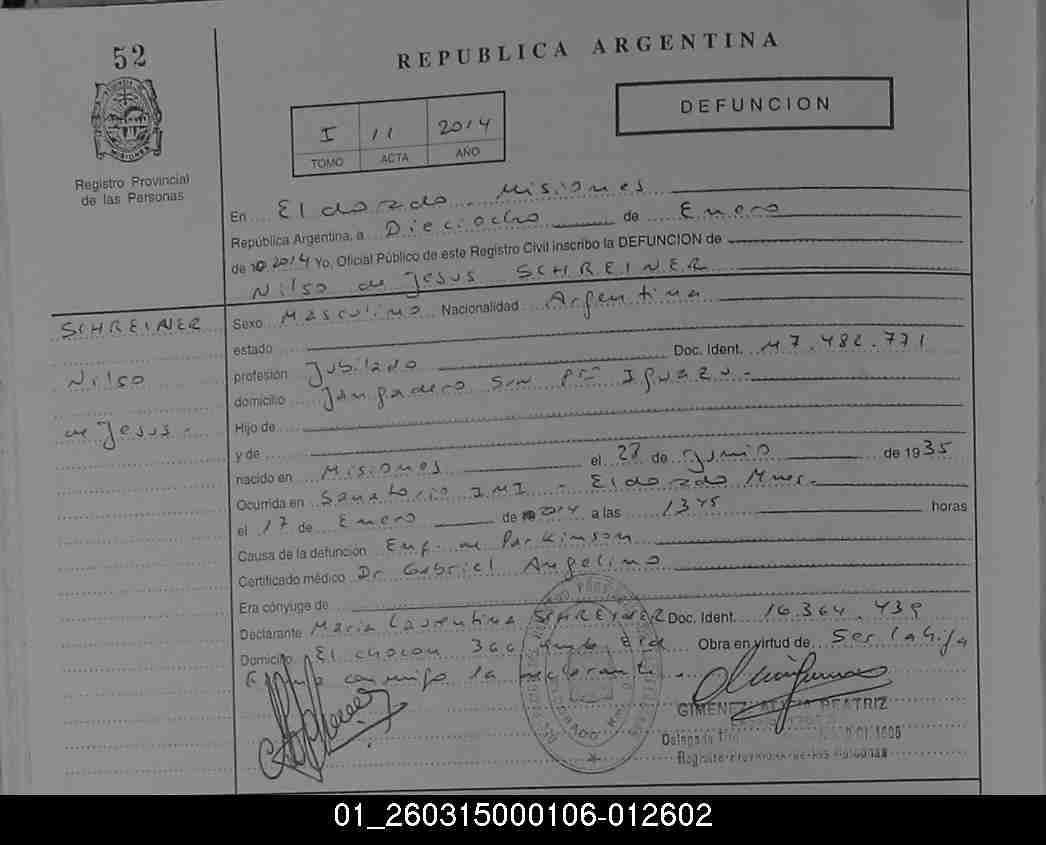 52
REPUBLICA ARGENTINA
DEFUNCION
I 11 2014
TOMO ACTA AÑO
Registro Provincial
de las Personas
En Eldorado - Misiones
República Argentina, a Dieciocho de Enero
de 2014 Yo, Oficial Público de este Registro Civil inscribo la DEFUNCION de
Nilso de Jesus SCHREINER
SCHREINER
Nilso
de Jesus -
Sexo Masculino Nacionalidad Argentina
estado
profesión Jubilado Doc. Ident. M 7.482.771
domicilio Jangadero S/N Pto Iguazu -
Hijo de
y de
nacido en Misiones el 27 de Junio de 1935
Ocurrida en Sanatorio IMI - Eldorado Mnes.
el 17 de Enero de 2014 a las 1345 horas
Causa de la defunción Enf. de Parkinson
Certificado médico Dr Gabriel Angelino
Era cónyuge de
Declarante Maria Laurentina SCHREINER Doc. Ident. 16.364.439
Domicilio El chocon 366 Obra en virtud de Ser la hija
Firma conmigo la declarante.
GIMENEZ ALICIA BEATRIZ
Registro Provincial de las Personas
01_260315000106-012602